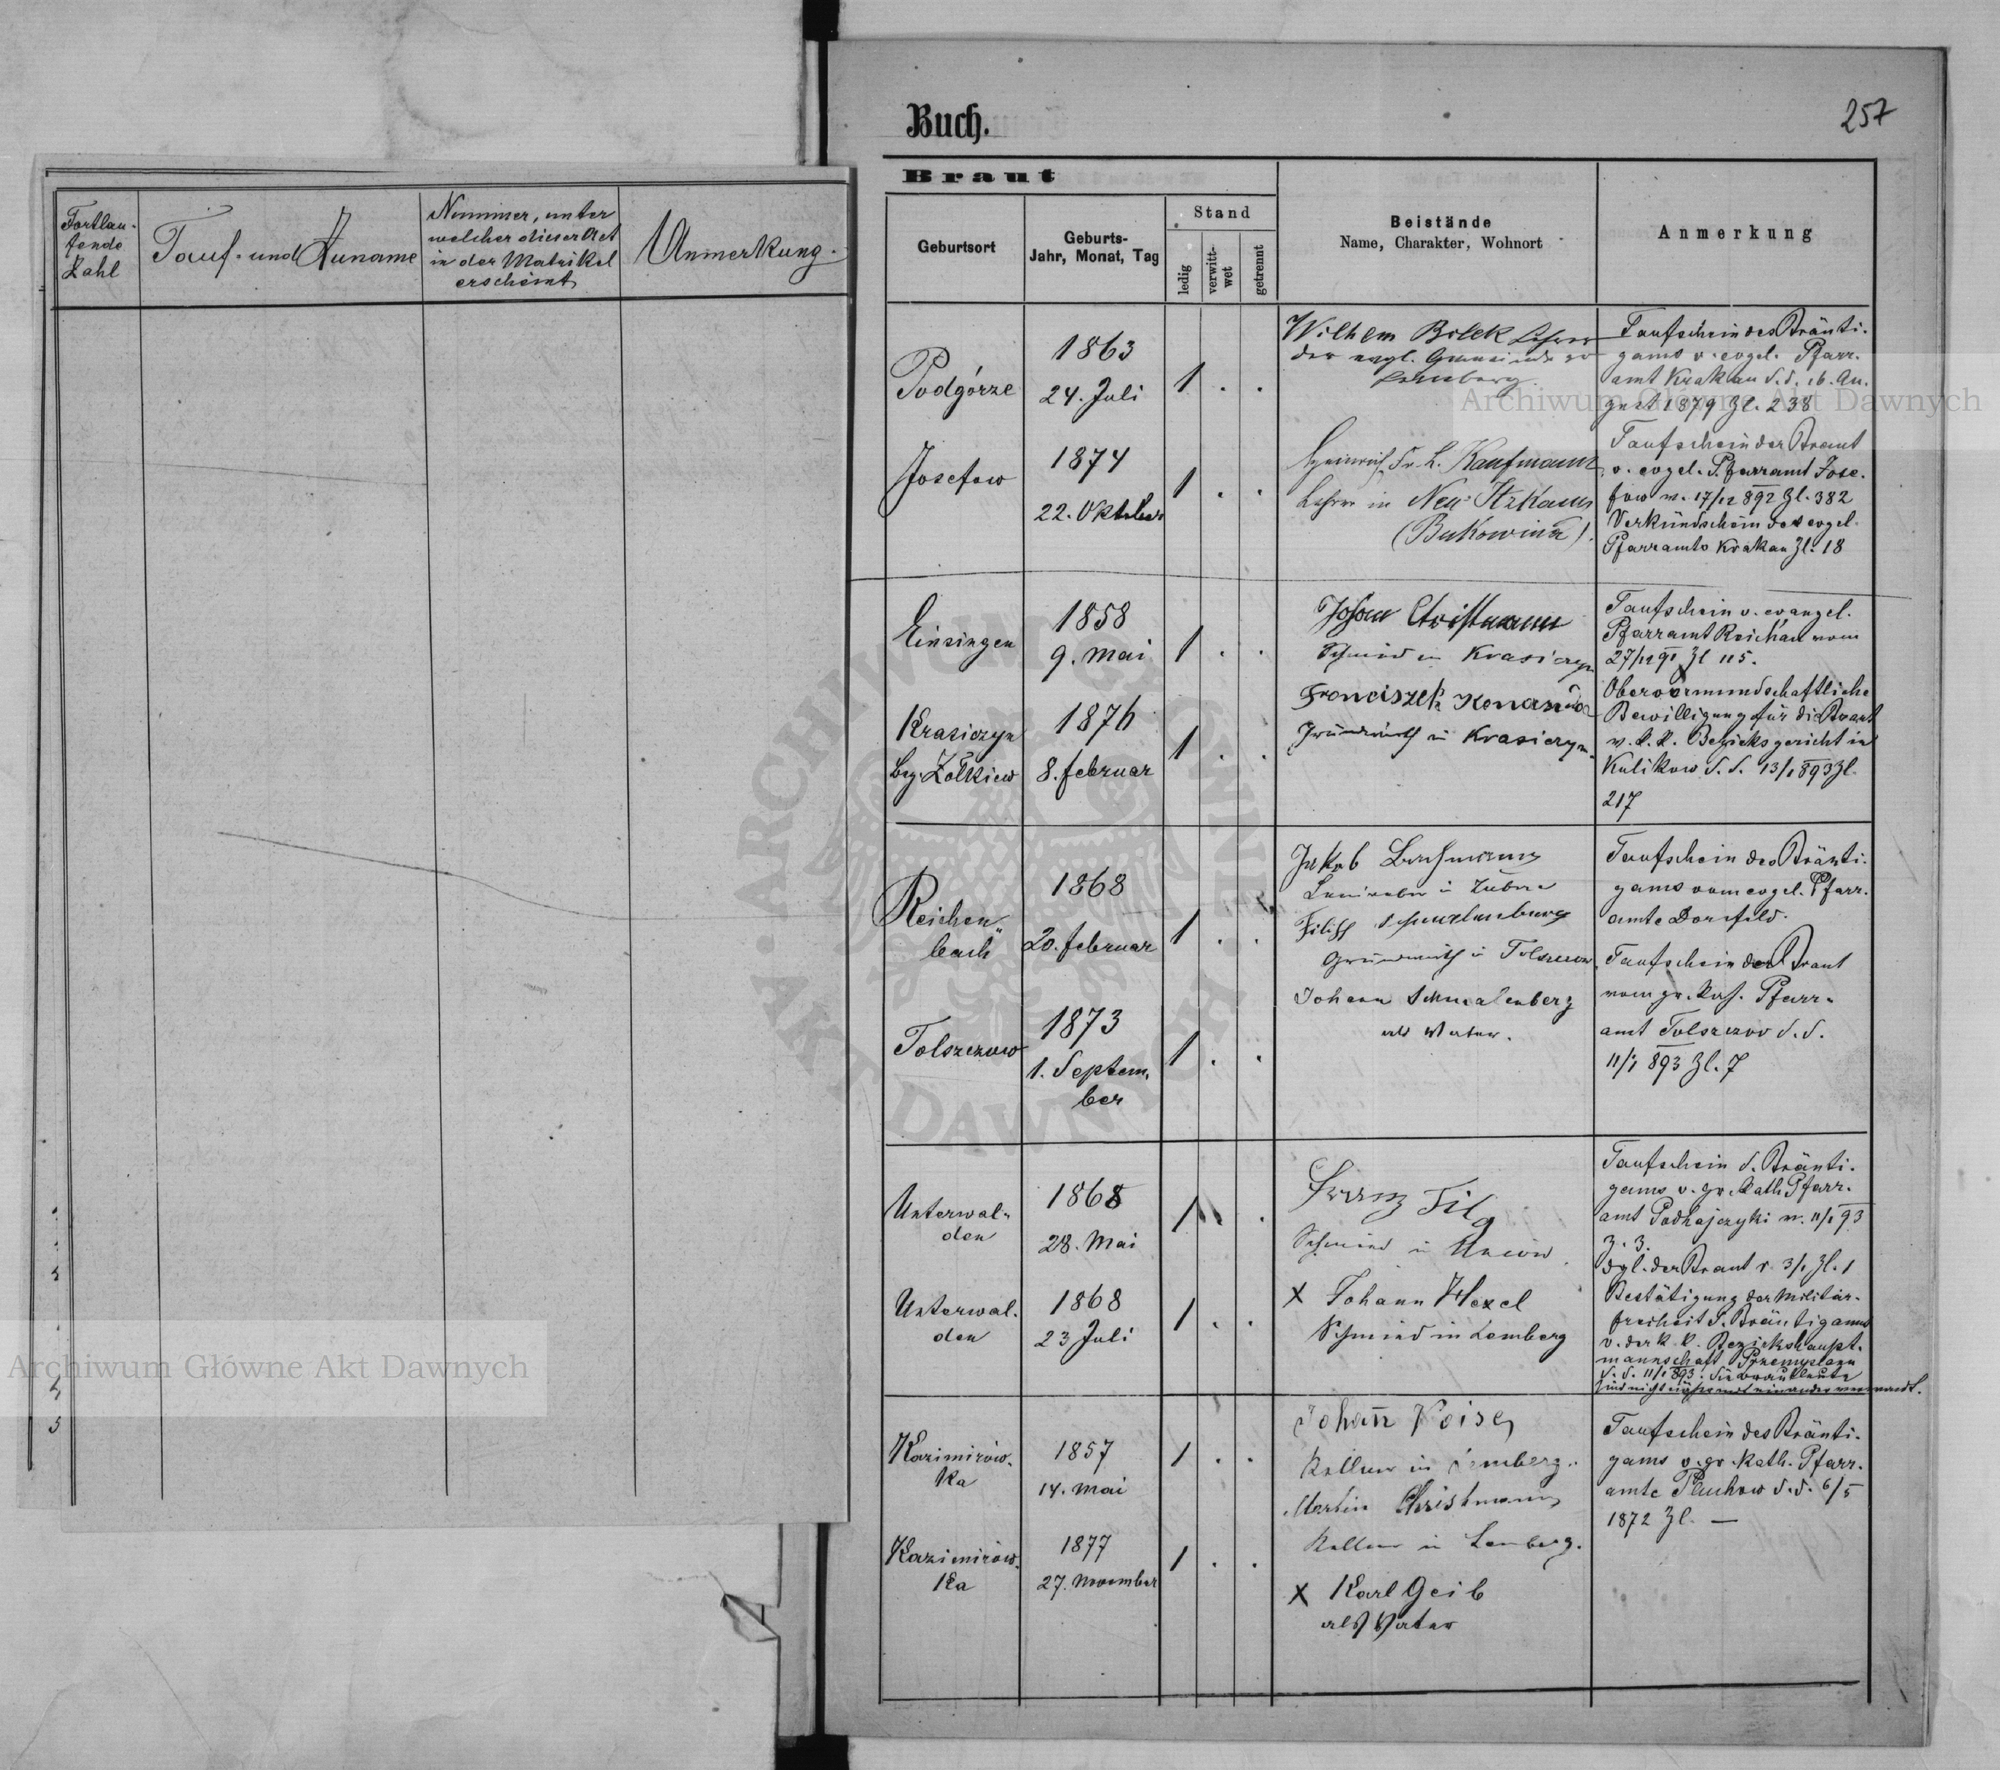 Buch.
257
Fortlau-
fende
Zahl
Tauf- und Zuname
Nummer, unter
welcher dieser Act
in der Matrikel
erscheint
Anmerkung.
Braut
Geburtsort
Geburts-
Jahr, Monat, Tag
Stand
ledig
verwitt-
wet
getrennt
Beistände
Name, Charakter, Wohnort
Anmerkung
Podgórze
1863
24. Juli
1 . .
Wilhelm Bolek Lehrer
der evgl. Gemeinde zu
Lemberg.
Taufschein des Bräuti-
gams v. evgel. Pfarr-
amt Krakau d. d. 16. Au-
gust 1879 Zl. 238
Josefow
1874
22. Oktober
1 . .
Heinrich Fr. L. Kaufmann
Lehrer in Neu-Itzkany
(Bukowina).
Taufschein der Braut
v. evgel. Pfarramt Jose-
fow v. 17/12 892 Zl. 382
Verkündschein des evgel.
Pfarramts Krakau Zl. 18
Einsingen
1858
9. Mai
1 . .
Johann Christmann
Schmied in Krasiczyn
Taufschein v. evangel.
Pfarramt Reichau vom
27/12 91 Zl 115.
Krasiczyn
bzg. Żółkiew
1876
8. Februar
1 . .
Franciszek
Grundwirth in Krasiczyn.
Obervormundschaftliche
Bewilligung für die Braut
v. k. k. Bezirksgericht in
Kulikow d. d. 13/1 893 Zl.
217
Reichen-
bach
1868
20. Februar
1 . .
Jakob Bachmann
in
Filipp
Grundwirth in Tolszczow
Taufschein des Bräuti-
gams vom evgel. Pfarr-
amte Dornfeld.
Tolszczow
1873
1. Septem-
ber
1 . .
Johann Schmalenberg
als Vater.
Taufschein der Braut
vom gr. kath. Pfarr-
amt Tolszczow d. d.
11/1 893 Zl. 7
Unterwal-
den
1868
28. Mai
1 .
Franz Tilg
Schmied in Uniów
Taufschein d. Bräuti-
gams v. gr. kath Pfarr-
amt Podhajczyki v. 11/1 93
Z. 3.
dgl. der Braut v. 3/1 Zl. 1
Unterwal-
den
1868
23 Juli
1 . .
x Johann Hexel
Schmied in Lemberg
Bestätigung der Militär-
freiheit d. Bräutigams
v. der k. k. Bezirkshaupt-
mannschaft Przemyslany
d. d. 11/1 893. Die Brautleute
sind nicht näher mit einander verwandt.
Kazimirów-
ka
1857
14. Mai
1 . .
Johann
Kellner in Lemberg.
Martin Christmann
Kellner in Lemberg.
Taufschein des Bräuti-
gams v. gr. kath. Pfarr-
amte Pluchow d. d. 6/5
1872 Zl. —
Kazimirów-
ka
1877
27. November
1 . .
x Karl Geib
als Vater
Archiwum Główne Akt Dawnych
Archiwum Główne Akt Dawnych
ARCHIWUM GŁÓWNE AKT DAWNYCH